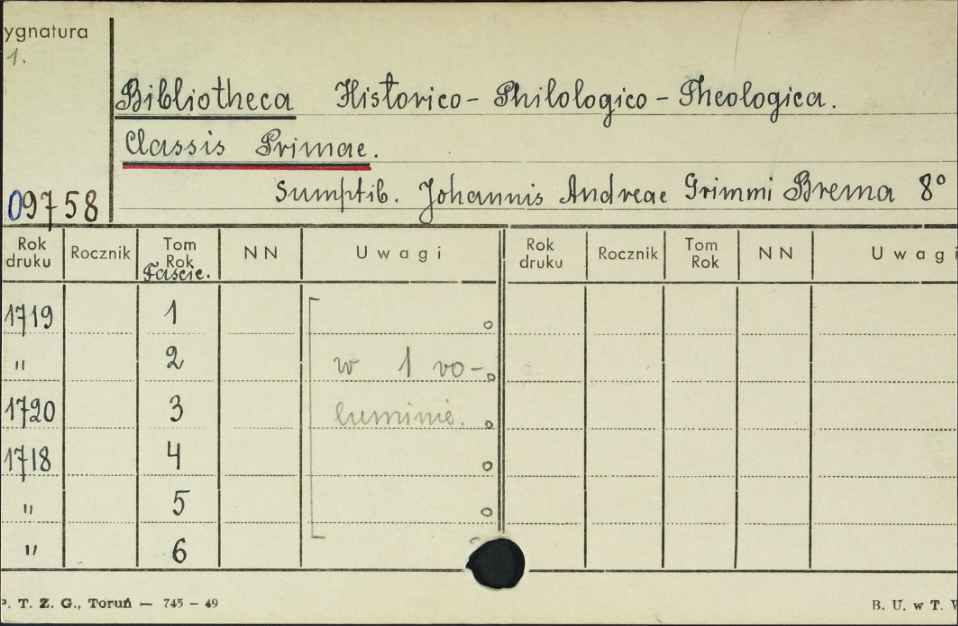 ygnatura
1.
Bibliotheca Historico - Philologico - Theologica.
Classis Primae.
Sumptib. Johannis Andreae Grimmi Brema 8°
09758
Rok druku Rocznik Tom Rok Fascic. N N Uwagi Rok druku Rocznik Tom Rok N N Uwagi
1719 1
" 2 w 1 vo-
1720 3 luminie.
1718 4
" 5
" 6
P. T. Z. G., Toruń — 745 - 49 B. U. w T.